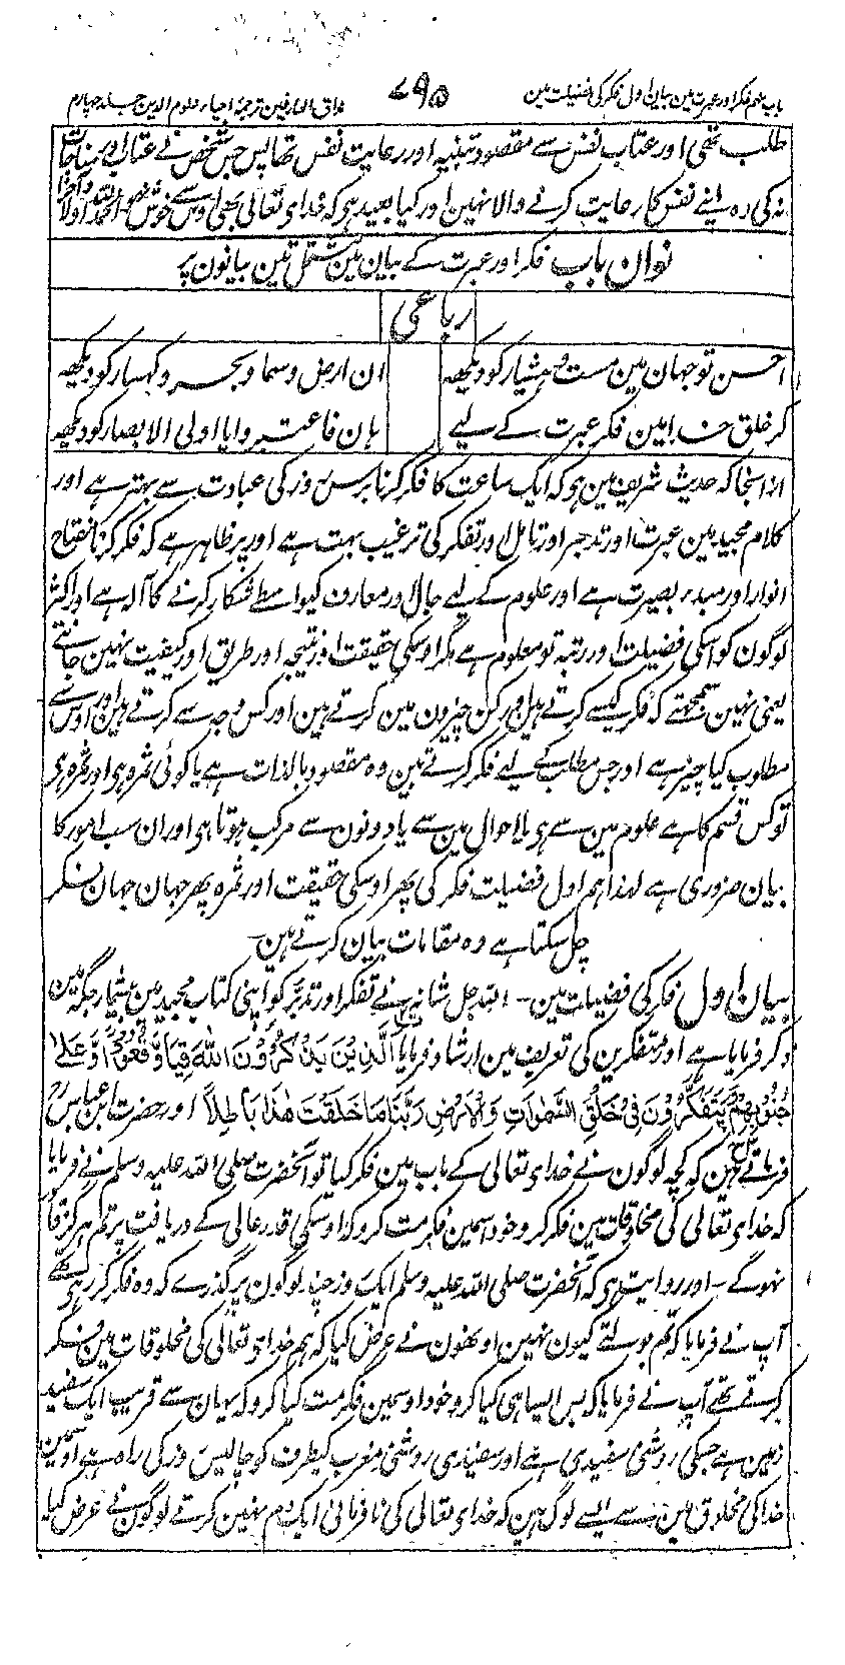 باب نہم فکر اور عبرت مین بیان اول فکر کی فضیلت مین
۷۹۵
مذاق العارفین ترجمۂ احیاء علوم الدین جلد چہارم
طلب تھی اور عتاب نفس سے مقصود تنبیہ اور رعایت نفس تھا پس جس شخص نے عتاب اور مناجات
نہ کی وہ اپنے نفس کا رعایت کرنے والا نہین اور کیا بعید ہی کہ خدای تعالی بھی اوس سے خوش نہو۔ الحمد للہ اولا و آخرا
نوان باب فکر اور عبرت کے بیان مین مشتمل تین بیانون پر
رباعی
احسن تو جہان مین مست و ہشیار کو دیکھ
ان ارض و سما و بحر و کہسار کو دیکھ
کر خلق خدا مین فکر عبرت کے لیے
ہان فاعتبروا یا اولی الابصار کو دیکھ
ازانجا کہ حدیث شریف مین ہی کہ ایک ساعت کا فکر کرنا برس روز کی عبادت سے بہتر ہے اور
کلام مجید مین عبرت اور تدبر اور تامل اور تفکر کی ترغیب بہت ہے اور پر ظاہر ہے کہ فکر کرنا مفتاح
انوار اور مبدء بصیرت ہے اور علوم کے لیے جال اور معارف کیواسطے شکار کرنے کا آلہ ہے اور اکثر
لوگون کو اسکی فضیلت اور رتبہ تو معلوم ہے مگر اوسکی حقیقت اور نتیجہ اور طریق اور کیفیت نہین جانتے
یعنی نہین سمجھتے کہ فکر کیسے کرتے ہین اور کن چیزون مین کرتے ہین اور کس وجہ سے کرتے ہین اور اوس سے
مطلوب کیا چیز ہے اور جس مطلب کے لیے فکر کرتے ہین وہ مقصود بالذات ہے یا کوئی ثمرہ ہی اور ثمرہ ہی
تو کس قسم کا ہے علوم مین سے ہی یا احوال مین سے یا دونون سے مرکب ہوتا ہی اور ان سب امور کا
بیان ضروری ہے لہذا ہم اول فضیلت فکر کی پھر اوسکی حقیقت اور ثمرہ پھر جہان جہان فکر
چل سکتا ہے وہ مقامات بیان کرتے ہین۔
بیان اول فکر کی فضیلت مین۔ اللہ جل شانہ نے تفکر اور تدبر کو اپنی کتاب مجید مین بیشمار جگہ مین
ذکر فرمایا ہے اور متفکرین کی تعریف مین ارشاد فرمایا اَلَّذِیْنَ یَذْکُرُوْنَ اللّٰهَ قِیَامًا وَّ قُعُوْدًا وَّ عَلٰی
جُنُوْبِهِمْ وَ یَتَفَکَّرُوْنَ فِیْ خَلْقِ السَّمٰوَاتِ وَالْاَرْضِ رَبَّنَا مَا خَلَقْتَ هٰذَا بَاطِلًا اور حضرت ابن عباس رض
فرماتے ہین کہ کچھ لوگون نے خدای تعالی کے باب مین فکر کیا تو آنحضرت صلی اللہ علیہ وسلم نے فرمایا
کہ خدای تعالی کی مخلوقات مین فکر کرو خود اسمین فکر مت کرو کہ اوسکی قدر عالی کے دریافت پر تم ہرگز قادر
نہوگے۔ اور روایت ہی کہ آنحضرت صلی اللہ علیہ وسلم ایک روز چند لوگون پر گذرے کہ وہ فکر کر رہے تھے
آپ نے فرمایا کہ تم بولتے کیون نہین اونھون نے عرض کیا کہ ہم خدای تعالی کی مخلوقات مین فکر
کرتے تھے آپ نے فرمایا کہ بس ایسا ہی کیا کرو خود اوسمین فکر مت کیا کرو کہ یہان سے قریب ایک سفید
زمین ہے جسکی روشنی سفیدی ہے اور سفیدی روشنی مغرب کیطرف کو چالیس روز کی راہ ہے اوسمین
خدا کی مخلوق مین سے ایسے لوگ ہین کہ خدای تعالی کی نافرمانی ایک دم نہین کرتے لوگون نے عرض کیا